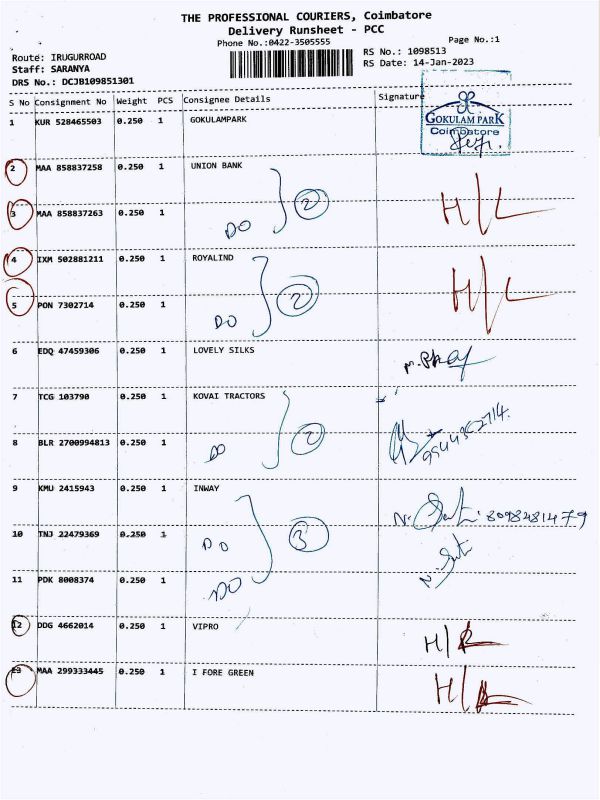 THE PROFESSIONAL COURIERS, Coimbatore
Delivery Runsheet - PCC
Phone No.:0422-3505555
Page No.:1
Route: IRUGURROAD
RS No.: 1098513
Staff: SARANYA
RS Date: 14-Jan-2023
DRS No.: DCJB109851301
S No Consignment No Weight PCS Consignee Details Signature
1 KUR 528465503 0.250 1 GOKULAMPARK
GOKULAM PARK
Coimbatore
2 MAA 858837258 0.250 1 UNION BANK
3 MAA 858837263 0.250 1
DO 2 H/L
4 IXM 502881211 0.250 1 ROYALIND
5 PON 7302714 0.250 1
DO 2 H/L
6 EDQ 47459306 0.250 1 LOVELY SILKS
7 TCG 103790 0.250 1 KOVAI TRACTORS
8 BLR 2700994813 0.250 1
DO 2 9544352714
9 KMU 2415943 0.250 1 INWAY
8098481479
10 TNJ 22479369 0.250 1
DO 3
11 PDK 8008374 0.250 1
DO
12 DDG 4662014 0.250 1 VIPRO
H/
13 MAA 299333445 0.250 1 I FORE GREEN
H/